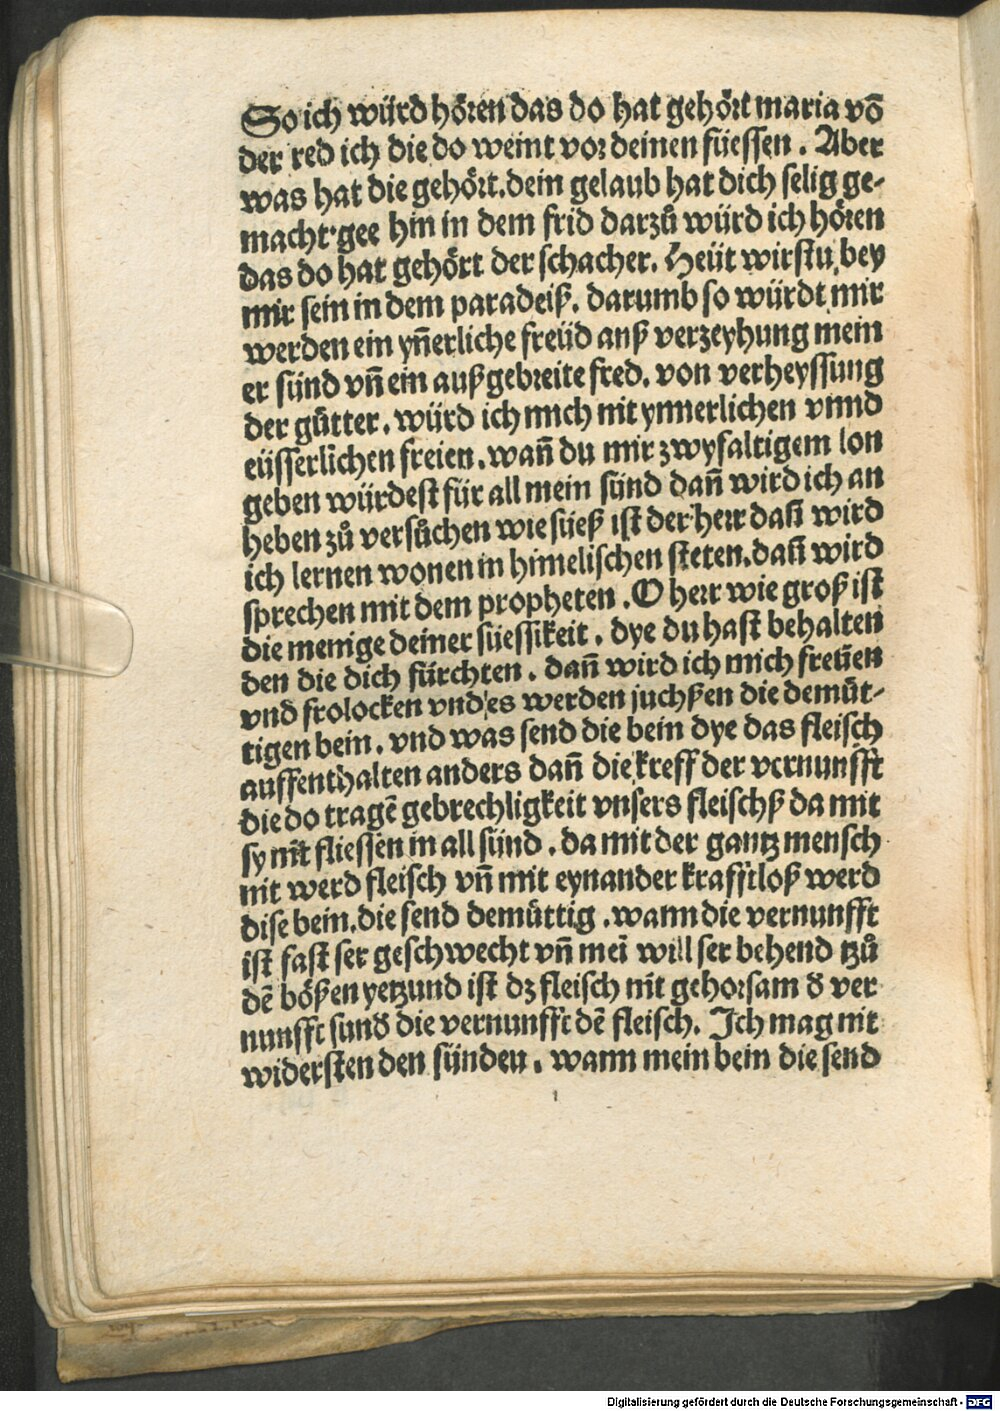 So ich würd hören das do hat gehört maria võ
der red ich die do weint vor deinen füessen . Aber
was hat die gehört. dein gelaub hat dich selig ge-
macht·gee hin in dem frid darzů würd ich hören
das do hat gehört der schacher. Heüt wirstu bey
mir sein in dem paradeiß. darumb so würdt mir
werden ein yn̄erliche freüd anß verzeyhung mein
er sünd vn̄ ein außgebreite fred. von verheyssung
der gütter. würd ich mich mit ynnerlichen vnnd
eüsserlichen freien. wan̄ du mir zwyfaltigem lon
geben würdest für all mein sünd dan̄ wird ich an
heben zů versůchen wie süeß ist der herr dan̄ wird
ich lernen wonen in himelischen steten. dan̄ wird
sprechen mit dem propheten . O herr wie groß ist
die menige deiner süessikeit . dye du hast behalten
den die dich fürchten . dan̄ wird ich mich freüen
vnd frolocken vnd es werden juchßen die demüt-
tigen bein. vnd was send die bein dye das fleisch
auffenthalten anders dan̄ die kreff der vernunfft
die do tragē gebrechligkeit vnsers fleischß da mit
sy nit̄ fliessen in all sünd . da mit der gantz mensch
nit werd fleisch vn̄ mit eynander krafftloß werd
dise bein. die send demüttig . wann die vernunfft
ist fast ser geschwecht vn̄ mei̇̄ will ser behend tzů
dē bößen yetzund ist dz fleisch nit̄ gehorsam đ ver
nunfft sunđ die vernunfft dē fleisch. Ich mag nit
widersten den sünden . wann mein bein die send